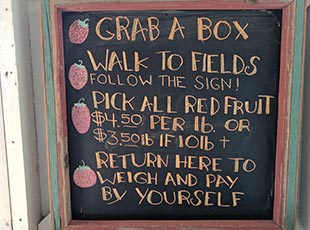 GRAB A BOX
WALK TO FIELDS
FOLLOW THE SIGN!
PICK ALL RED FRUIT
$4.50 PER lb. OR
$3.50 lb IF 10 lb +
RETURN HERE TO
WEIGH AND PAY
BY YOURSELF